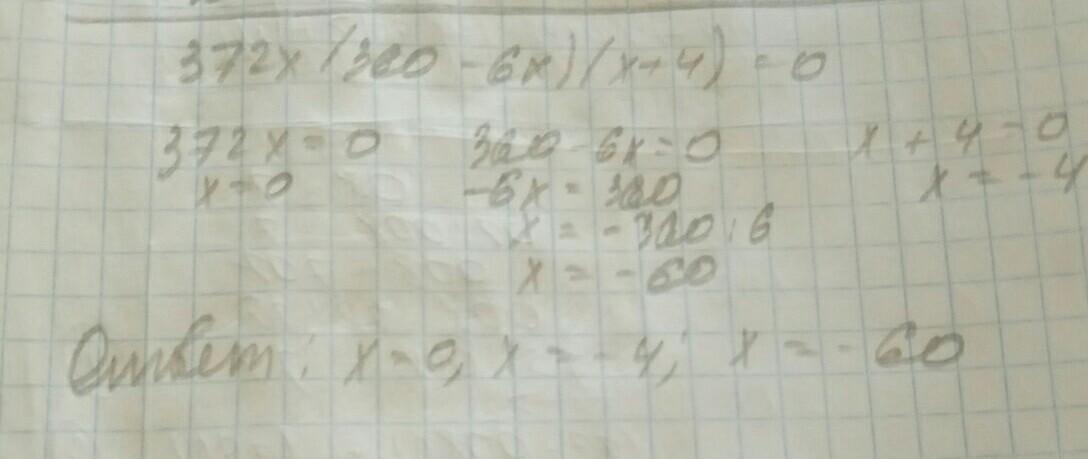 372x(360 - 6x)(x+4) = 0
372x = 0 360 - 6x = 0 x + 4 = 0
x = 0 -6x = 360 x = -4
x = -360 : 6
x = -60
Ответ: x = 0, x = -4; x = -60